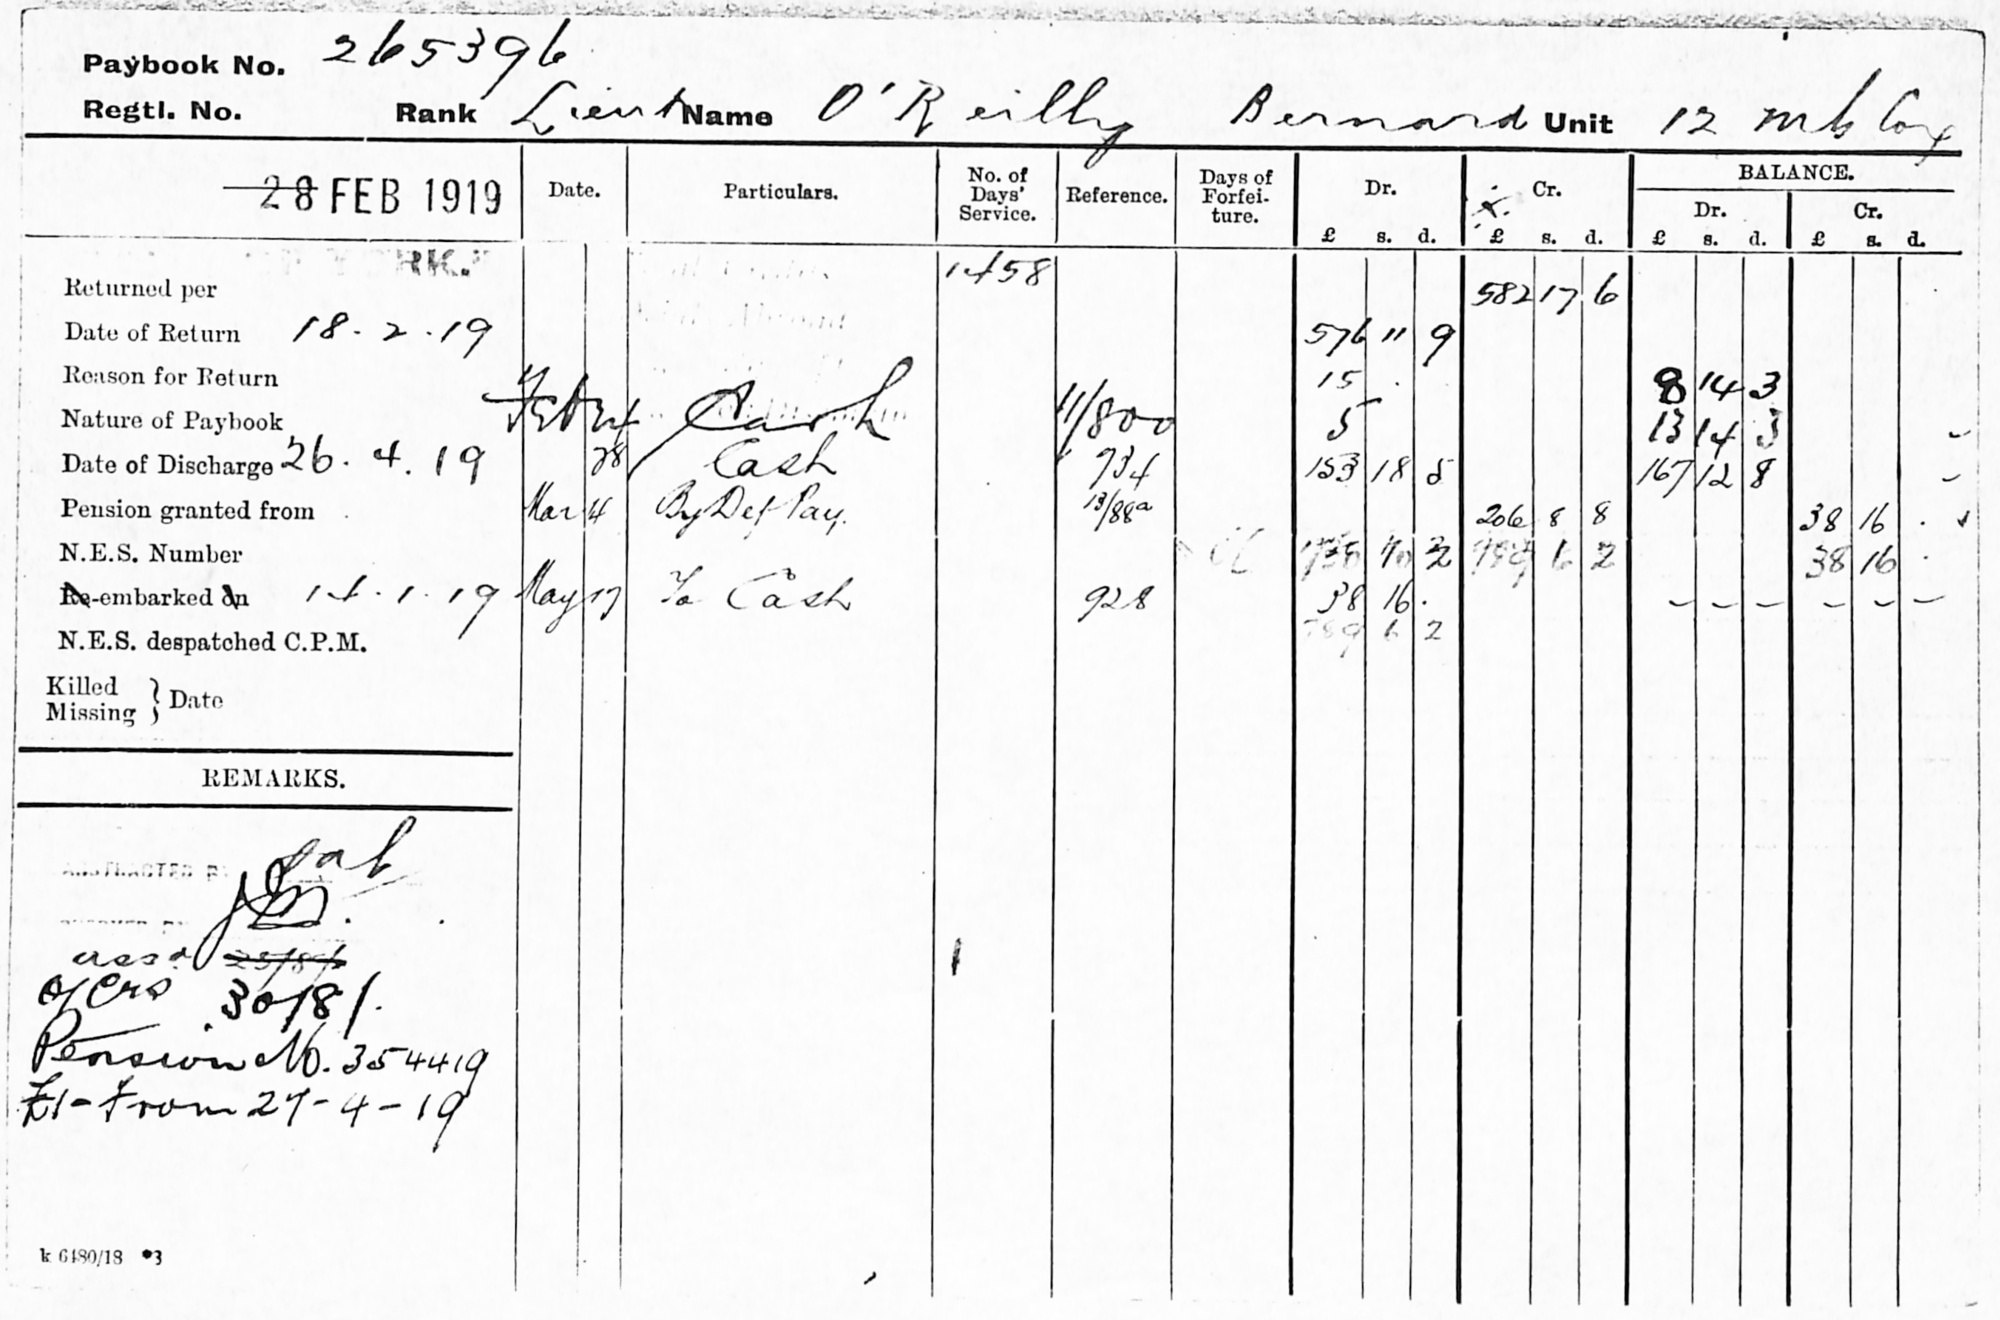 Paybook No. 265396
Regtl. No. Rank Lieut Name O'Reilly Bernard Unit 12 Mb Coy
28 FEB 1919 Date. Particulars. No. of Days' Service. Reference. Days of Forfeiture. Dr. Cr. BALANCE.
Dr. Cr.
£ s. d. £ s. d. £ s. d. £ s. d.
1458
Returned per 582 17 6
Date of Return 18.2.19 576 11 9
Reason for Return 15 . 8 14 3
Nature of Paybook Feb 24 Cash 11/800 5 13 14 3
Date of Discharge 26.4.19 28 Cash 934 153 18 5 167 12 8
Pension granted from Mar 4 By Def Pay. 13/88a 206 8 8 38 16 .
N.E.S. Number 789 6 2 38 16 .
Re-embarked on 14.1.19 May 17 To Cash 928 38 16 . – – – – – –
789 6 2
N.E.S. despatched C.P.M.
Killed
Missing } Date
REMARKS.
30/81.
Pension No. 354419
£1- From 27-4-19
k 6480/18 *3